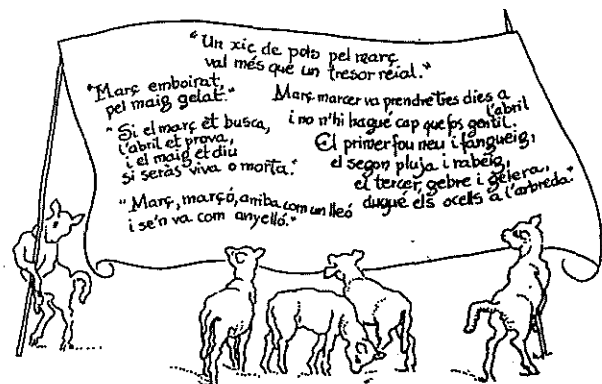 "Un xic de pols pel març
val més que un tresor reial."
"Març emboirat,
pel maig gelat."
"Si el març et busca,
l'abril et prova,
i el maig et diu
si seràs viva o morta."
"Març, marçó, arriba com un lleó
i se'n va com anyelló."
Març marcer va prendre tres dies a
l'abril
i no n'hi hagué cap que fos gentil.
El primer fou neu i fangueig,
el segon pluja i rabeig,
el tercer, gebre i gelera,
dugué els ocells a l'arbreda."